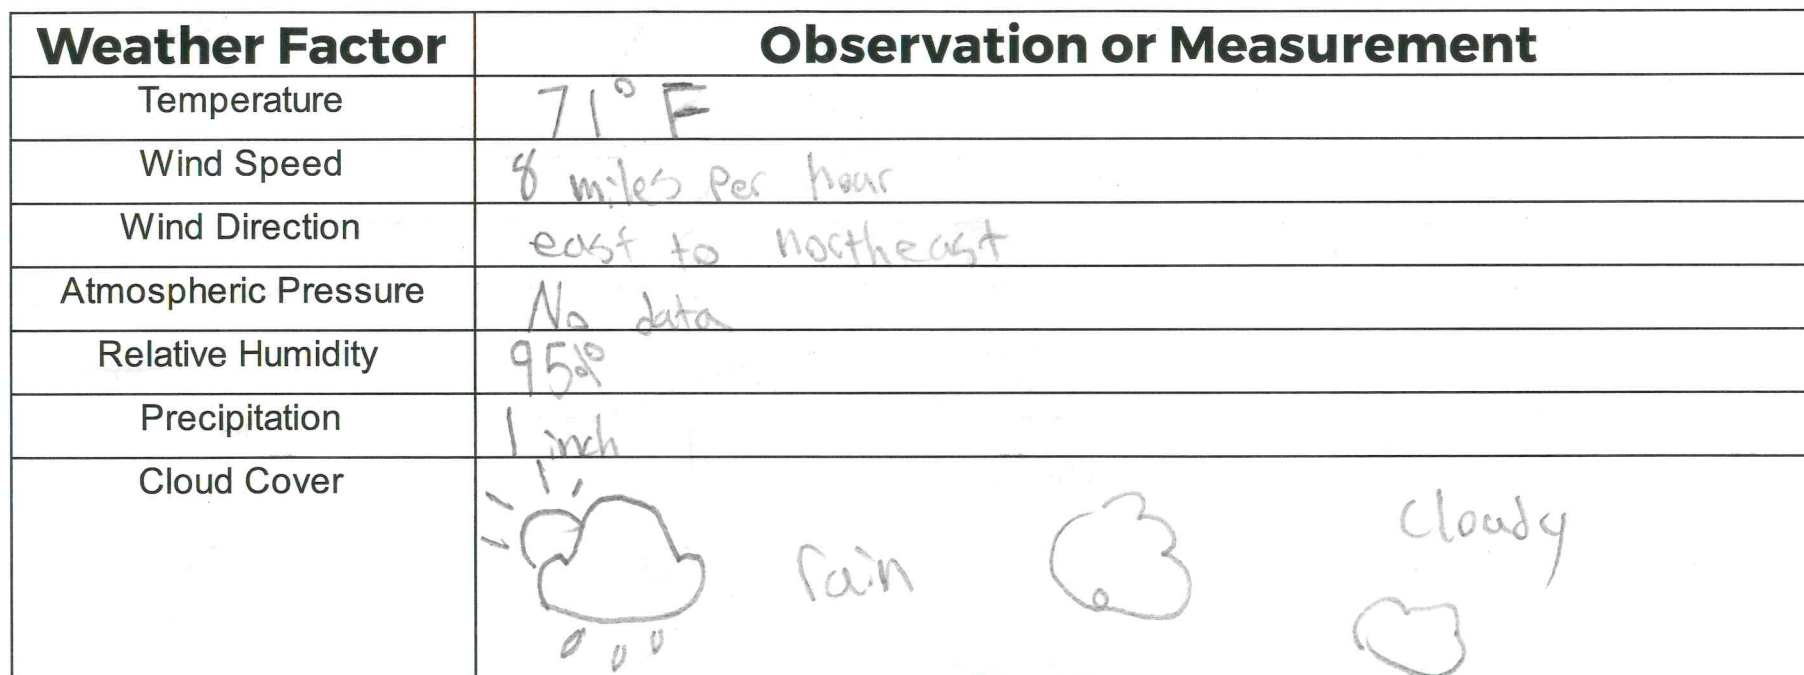 Weather Factor Observation or Measurement
Temperature 71° F
Wind Speed 8 miles per hour
Wind Direction east to northeast
Atmospheric Pressure No data
Relative Humidity 95%
Precipitation 1 inch
Cloud Cover
rain cloudy